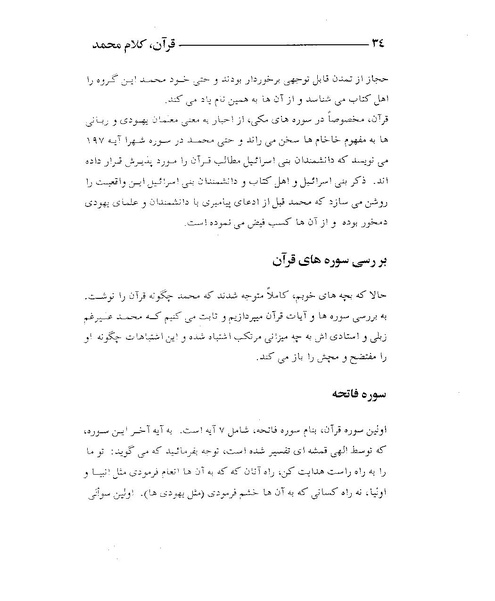 ۳٤ قرآن، کلام محمد
حجاز از تمدن قابل توجهی برخوردار بودند و حتی خود محمد این گروه را
اهل کتاب می شناسد و از آن ها به همین نام یاد می کند.
قرآن، مخصوصاً در سوره های مکی، از احبار به معنی معلمان یهودی و ربانی
ها به مفهوم خاخام ها سخن می راند و حتی محمد در سوره شهرا آیه ۱۹۷
می نویسد که دانشمندان بنی اسرائیل مطالب قرآن را مورد پذیرش قرار داده
اند. ذکر بنی اسرائیل و اهل کتاب و دانشمندان بنی اسرائیل این واقعیت را
روشن می سازد که محمد قبل از ادعای پیامبری با دانشمندان و علمای یهودی
دمخور بوده و از آن ها کسب فیض می نموده است.
بررسی سوره های قرآن
حالا که بچه های خوبم، کاملاً متوجه شدند که محمد چگونه قرآن را نوشت،
به بررسی سوره ها و آیات قرآن میپردازیم و ثابت می کنیم که محمد علیرغم
زبلی و استادی اش به چه میزانی مرتکب اشتباه شده و این اشتباهات چگونه او
را مفتضح و مچش را باز می کند.
سوره فاتحه
اولین سوره قرآن، بنام سوره فاتحه، شامل ۷ آیه است. به آیه آخر این سوره،
که توسط الهی قمشه ای تفسیر شده است، توجه بفرمائید که می گوید: تو ما
را به راه راست هدایت کن، راه آنان که که به آن ها انعام فرمودی مثل انبیا و
اولیا، نه راه کسانی که به آن ها خشم فرمودی (مثل یهودی ها). اولین سوآلی